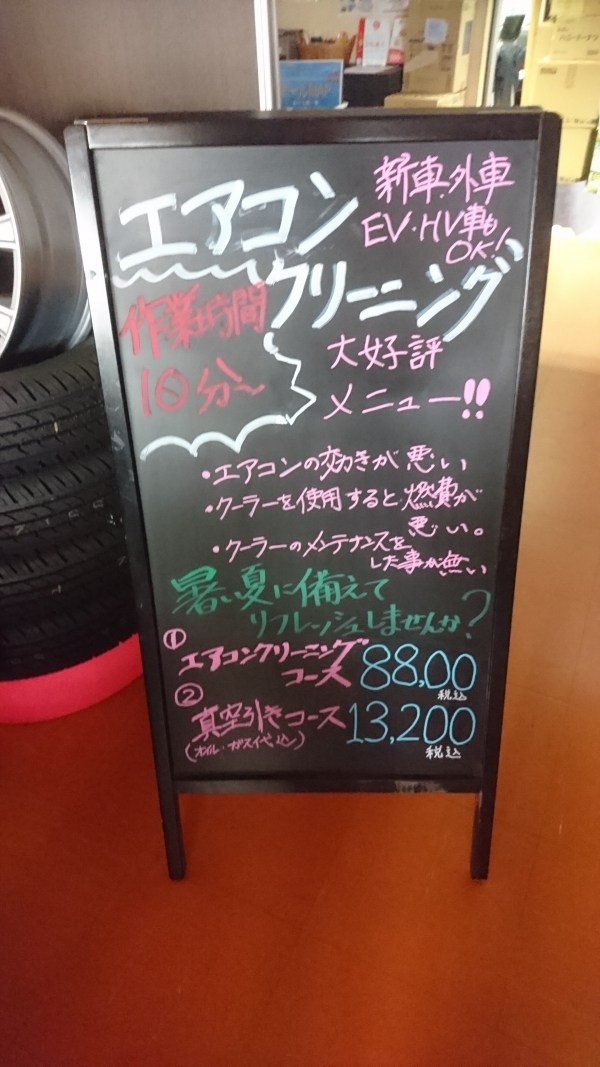 エアコン
クリーニング
新車・外車
EV・HV車も
OK!
作業時間
10分～
大好評
メニュー!!
・エアコンの効きが悪い
・クーラーを使用すると燃費が
悪い。
・クーラーのメンテナンスを
した事が無い
暑い夏に備えて
リフレッシュしませんか?
①
エアコンクリーニング
コース 88,00
税込
②
真空引きコース 13,200
(オイル・ガス代込) 税込